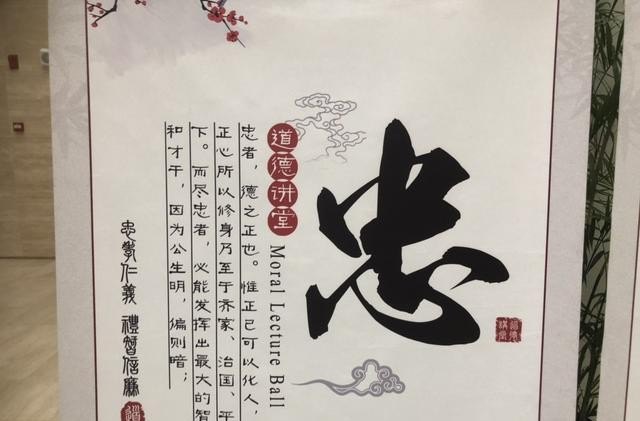 忠
道德讲堂
Moral Lecture Ball
忠者，德之正也。惟正己可以化人，
正心所以修身乃至于齐家、治国、平
下。而尽忠者，必能发挥出最大的智
和才干，因为公生明，偏则暗；
忠孝仁義 禮智信廉
道